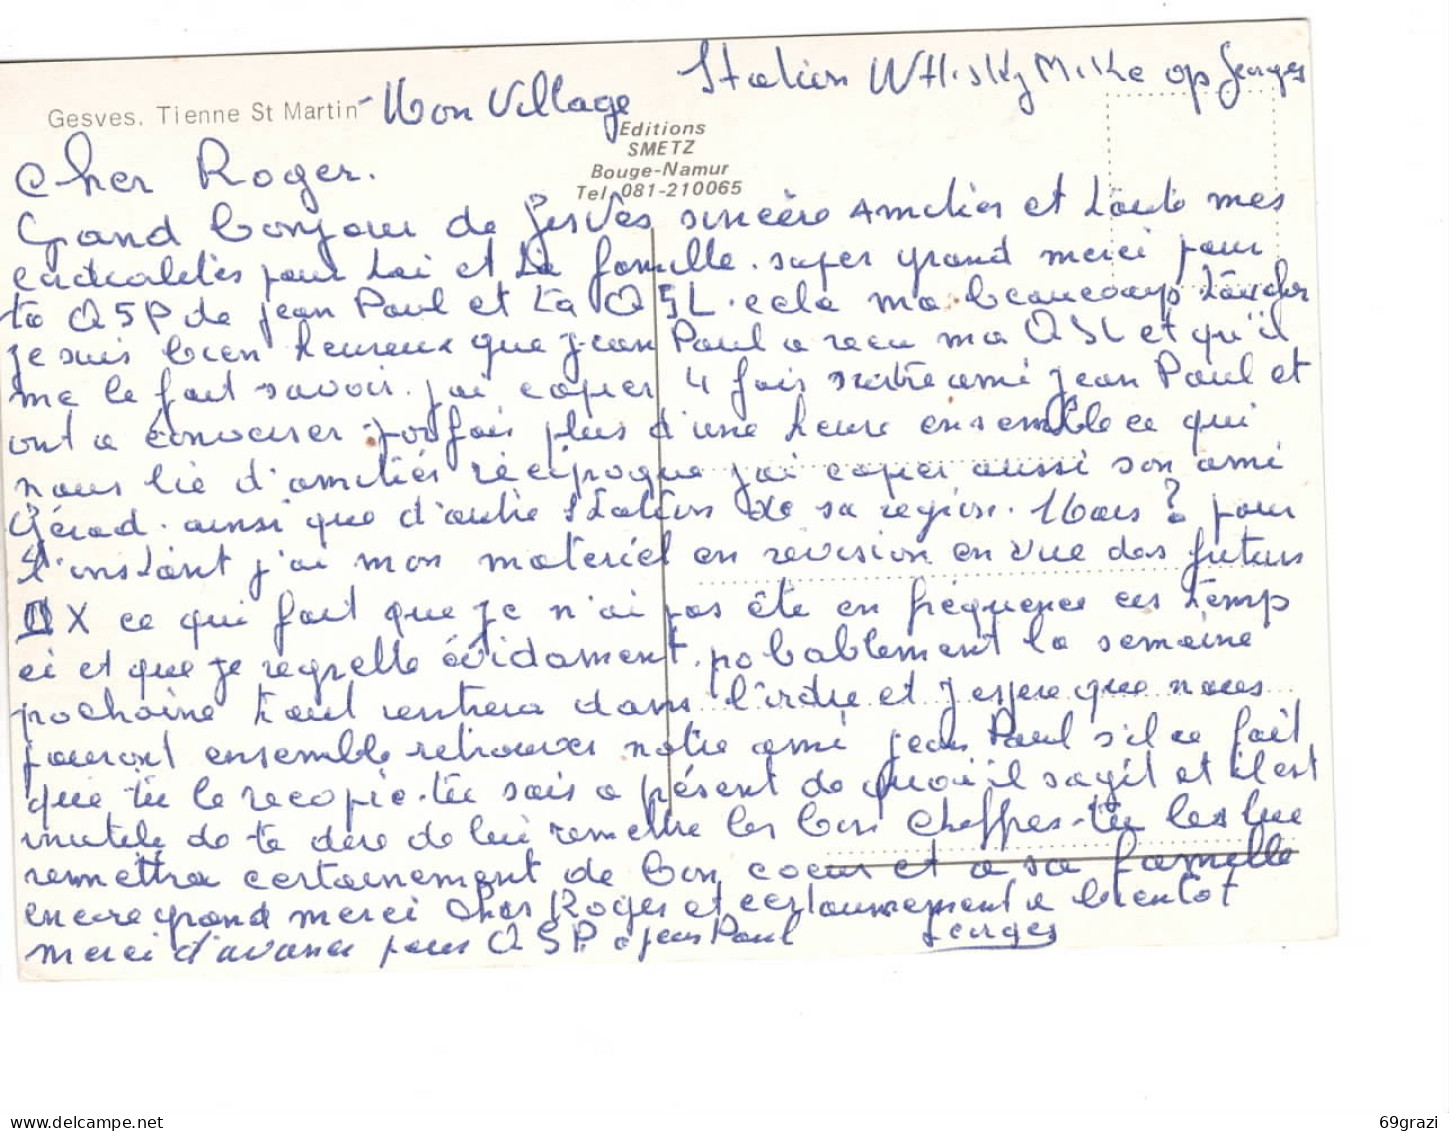 Station WHisky Mike op Georges
Gesves. Tienne St Martin - Mon Village
Editions
SMETZ
Bouge-Namur
Tel. 081-210065
Cher Roger.
Grand bonjour de Gesves sincère Amitier et toute mes
cadialités pour toi et ta famille. super grand merci pour
ta QSP de jean Paul et ta QSL. cela ma beaucoup toucher
je suis bien heureux que jean Paul a recu ma QSL et qu'il
me le fait savoir. j'ai copier 4 fois notre ami jean Paul et
ont a converser parfois plus d'une heure ensemble ce qui
nous lie d'amitiés réciproque j'ai copier aussi son ami
Gérad. ainsi que d'autre station de sa region. Mais ? pour
l'instant j'ai mon materiel en revision en vue des futurs
DX ce qui fait que je n'ai pas été en fréquence ces temp
ci et que je regrette évidament. pobablement la semaine
prochaine tout rentrera dans l'ordre et j'espere que nous
pouront ensemble retrouver notre ami jean Paul s'il ce fait
que tu le recopie. tu sais a présent de quoi il sagit et il est
inutile de te dire de lui remettre les bon cheffres. tu les lui
remettra certainement de bon coeur et a sa famille
encore grand merci cher Roger et certainement a bientot
merci d'avance pour QSP a jean Paul Georges
69grazi